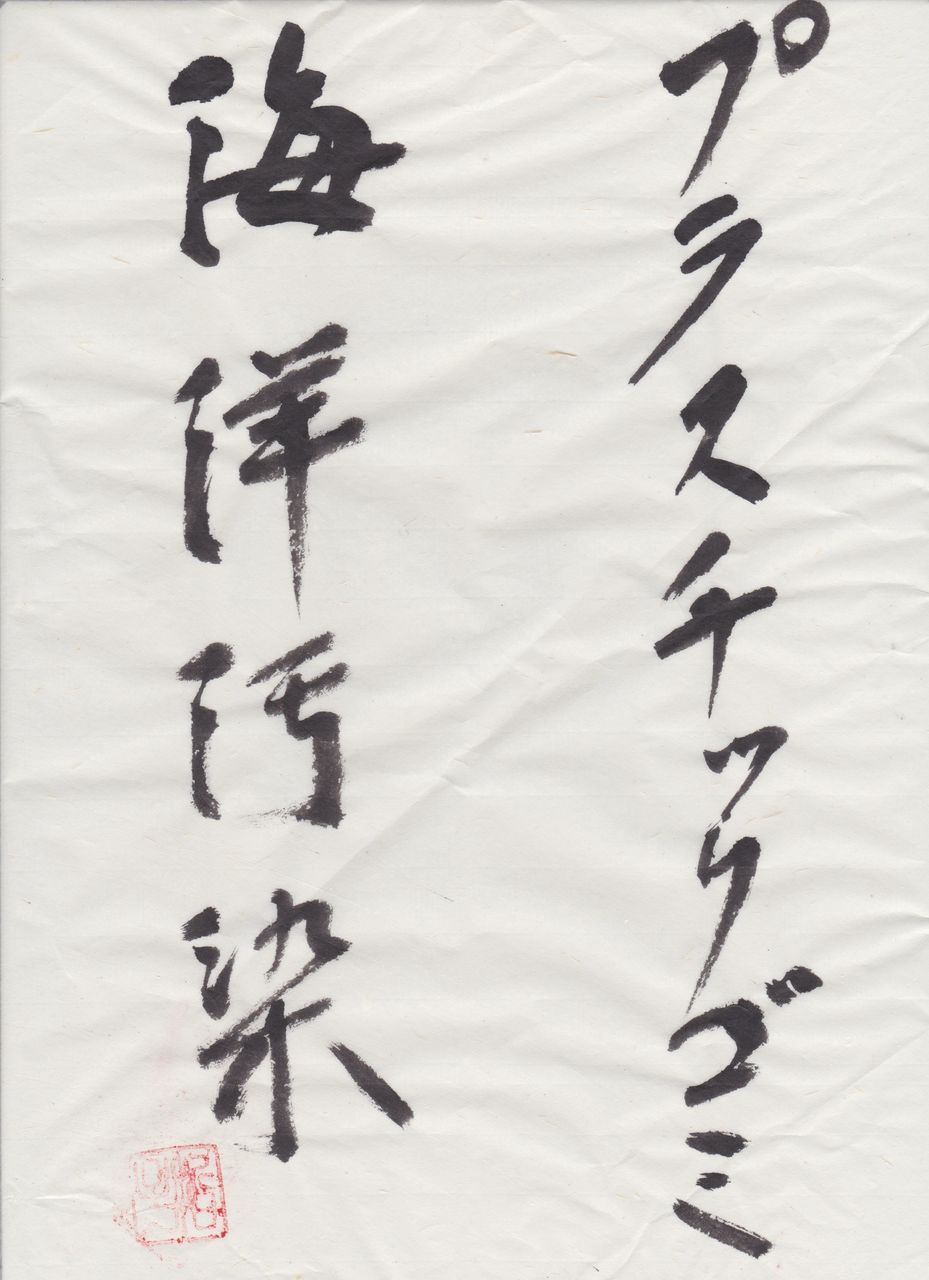 プラスチックゴミ
海洋汚染